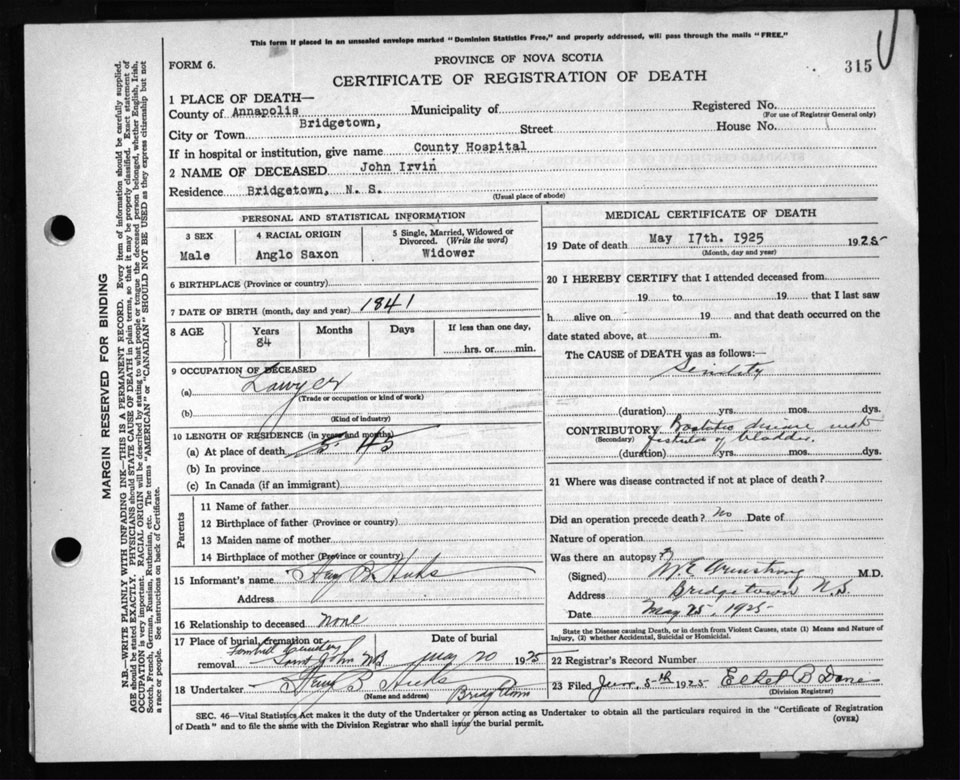 This form if placed in an unsealed envelope marked "Dominion Statistics Free," and properly addressed, will pass through the mails "FREE."
FORM 6.
PROVINCE OF NOVA SCOTIA
CERTIFICATE OF REGISTRATION OF DEATH
315
1 PLACE OF DEATH—
County of Annapolis Municipality of Registered No.
(For use of Registrar General only)
City or Town Bridgetown, Street House No.
If in hospital or institution, give name County Hospital
2 NAME OF DECEASED John Irvin
Residence Bridgetown, N. S.
(Usual place of abode)
PERSONAL AND STATISTICAL INFORMATION
3 SEX
Male
4 RACIAL ORIGIN
Anglo Saxon
5 Single, Married, Widowed or
Divorced. (Write the word)
Widower
6 BIRTHPLACE (Province or country)
7 DATE OF BIRTH (month, day and year) 1841
8 AGE Years Months Days If less than one day,
84 hrs. or min.
9 OCCUPATION OF DECEASED
(a) Lawyer
(Trade or occupation or kind of work)
(b)
(Kind of industry)
10 LENGTH OF RESIDENCE (in years and months)
(a) At place of death 45
(b) In province
(c) In Canada (if an immigrant)
Parents
11 Name of father
12 Birthplace of father (Province or country)
13 Maiden name of mother
14 Birthplace of mother (Province or country)
15 Informant's name B. Hicks
Address
16 Relationship to deceased none
17 Place of burial, cremation or Date of burial
removal Fernhill Cemetery
Saint John NB May 20 1925
18 Undertaker B Hicks
(Name and address)
MEDICAL CERTIFICATE OF DEATH
19 Date of death May 17th. 1925 1925
(Month, day and year)
20 I HEREBY CERTIFY that I attended deceased from
19 to 19 that I last saw
h alive on 19 and that death occurred on the
date stated above, at m.
The CAUSE of DEATH was as follows:—
Senility
(duration) yrs. mos. dys.
CONTRIBUTORY Prostatic disease with
(Secondary) fistula of bladder.
(duration) yrs. mos. dys.
21 Where was disease contracted if not at place of death?
Did an operation precede death? No Date of
Nature of operation
Was there an autopsy?
(Signed) Armstrong M.D.
Address Bridgetown N.S.
Date May 25, 1925
State the Disease causing Death, or in death from Violent Causes, state (1) Means and Nature of
Injury, (2) whether Accidental, Suicidal or Homicidal.
22 Registrar's Record Number
23 Filed June 5th 1925 Ethel B
(Division Registrar)
SEC. 46—Vital Statistics Act makes it the duty of the Undertaker or person acting as Undertaker to obtain all the particulars required in the "Certificate of Registration
of Death" and to file the same with the Division Registrar who shall issue the burial permit.
(OVER)
MARGIN RESERVED FOR BINDING
N.B.—WRITE PLAINLY WITH UNFADING INK—THIS IS A PERMANENT RECORD. Every item of information should be carefully supplied.
AGE should be stated EXACTLY. PHYSICIANS should STATE CAUSE OF DEATH in plain terms, so that it may be properly classified. Exact statement of
OCCUPATION is very important. RACIAL ORIGIN will be described by stating to what people or tongue the deceased person belonged, whether English, Irish,
Scotch, French, German, Russian, Ruthenian, etc. The terms "AMERICAN" or "CANADIAN" SHOULD NOT BE USED as they express citizenship but not
a race or people. See instructions on back of Certificate.